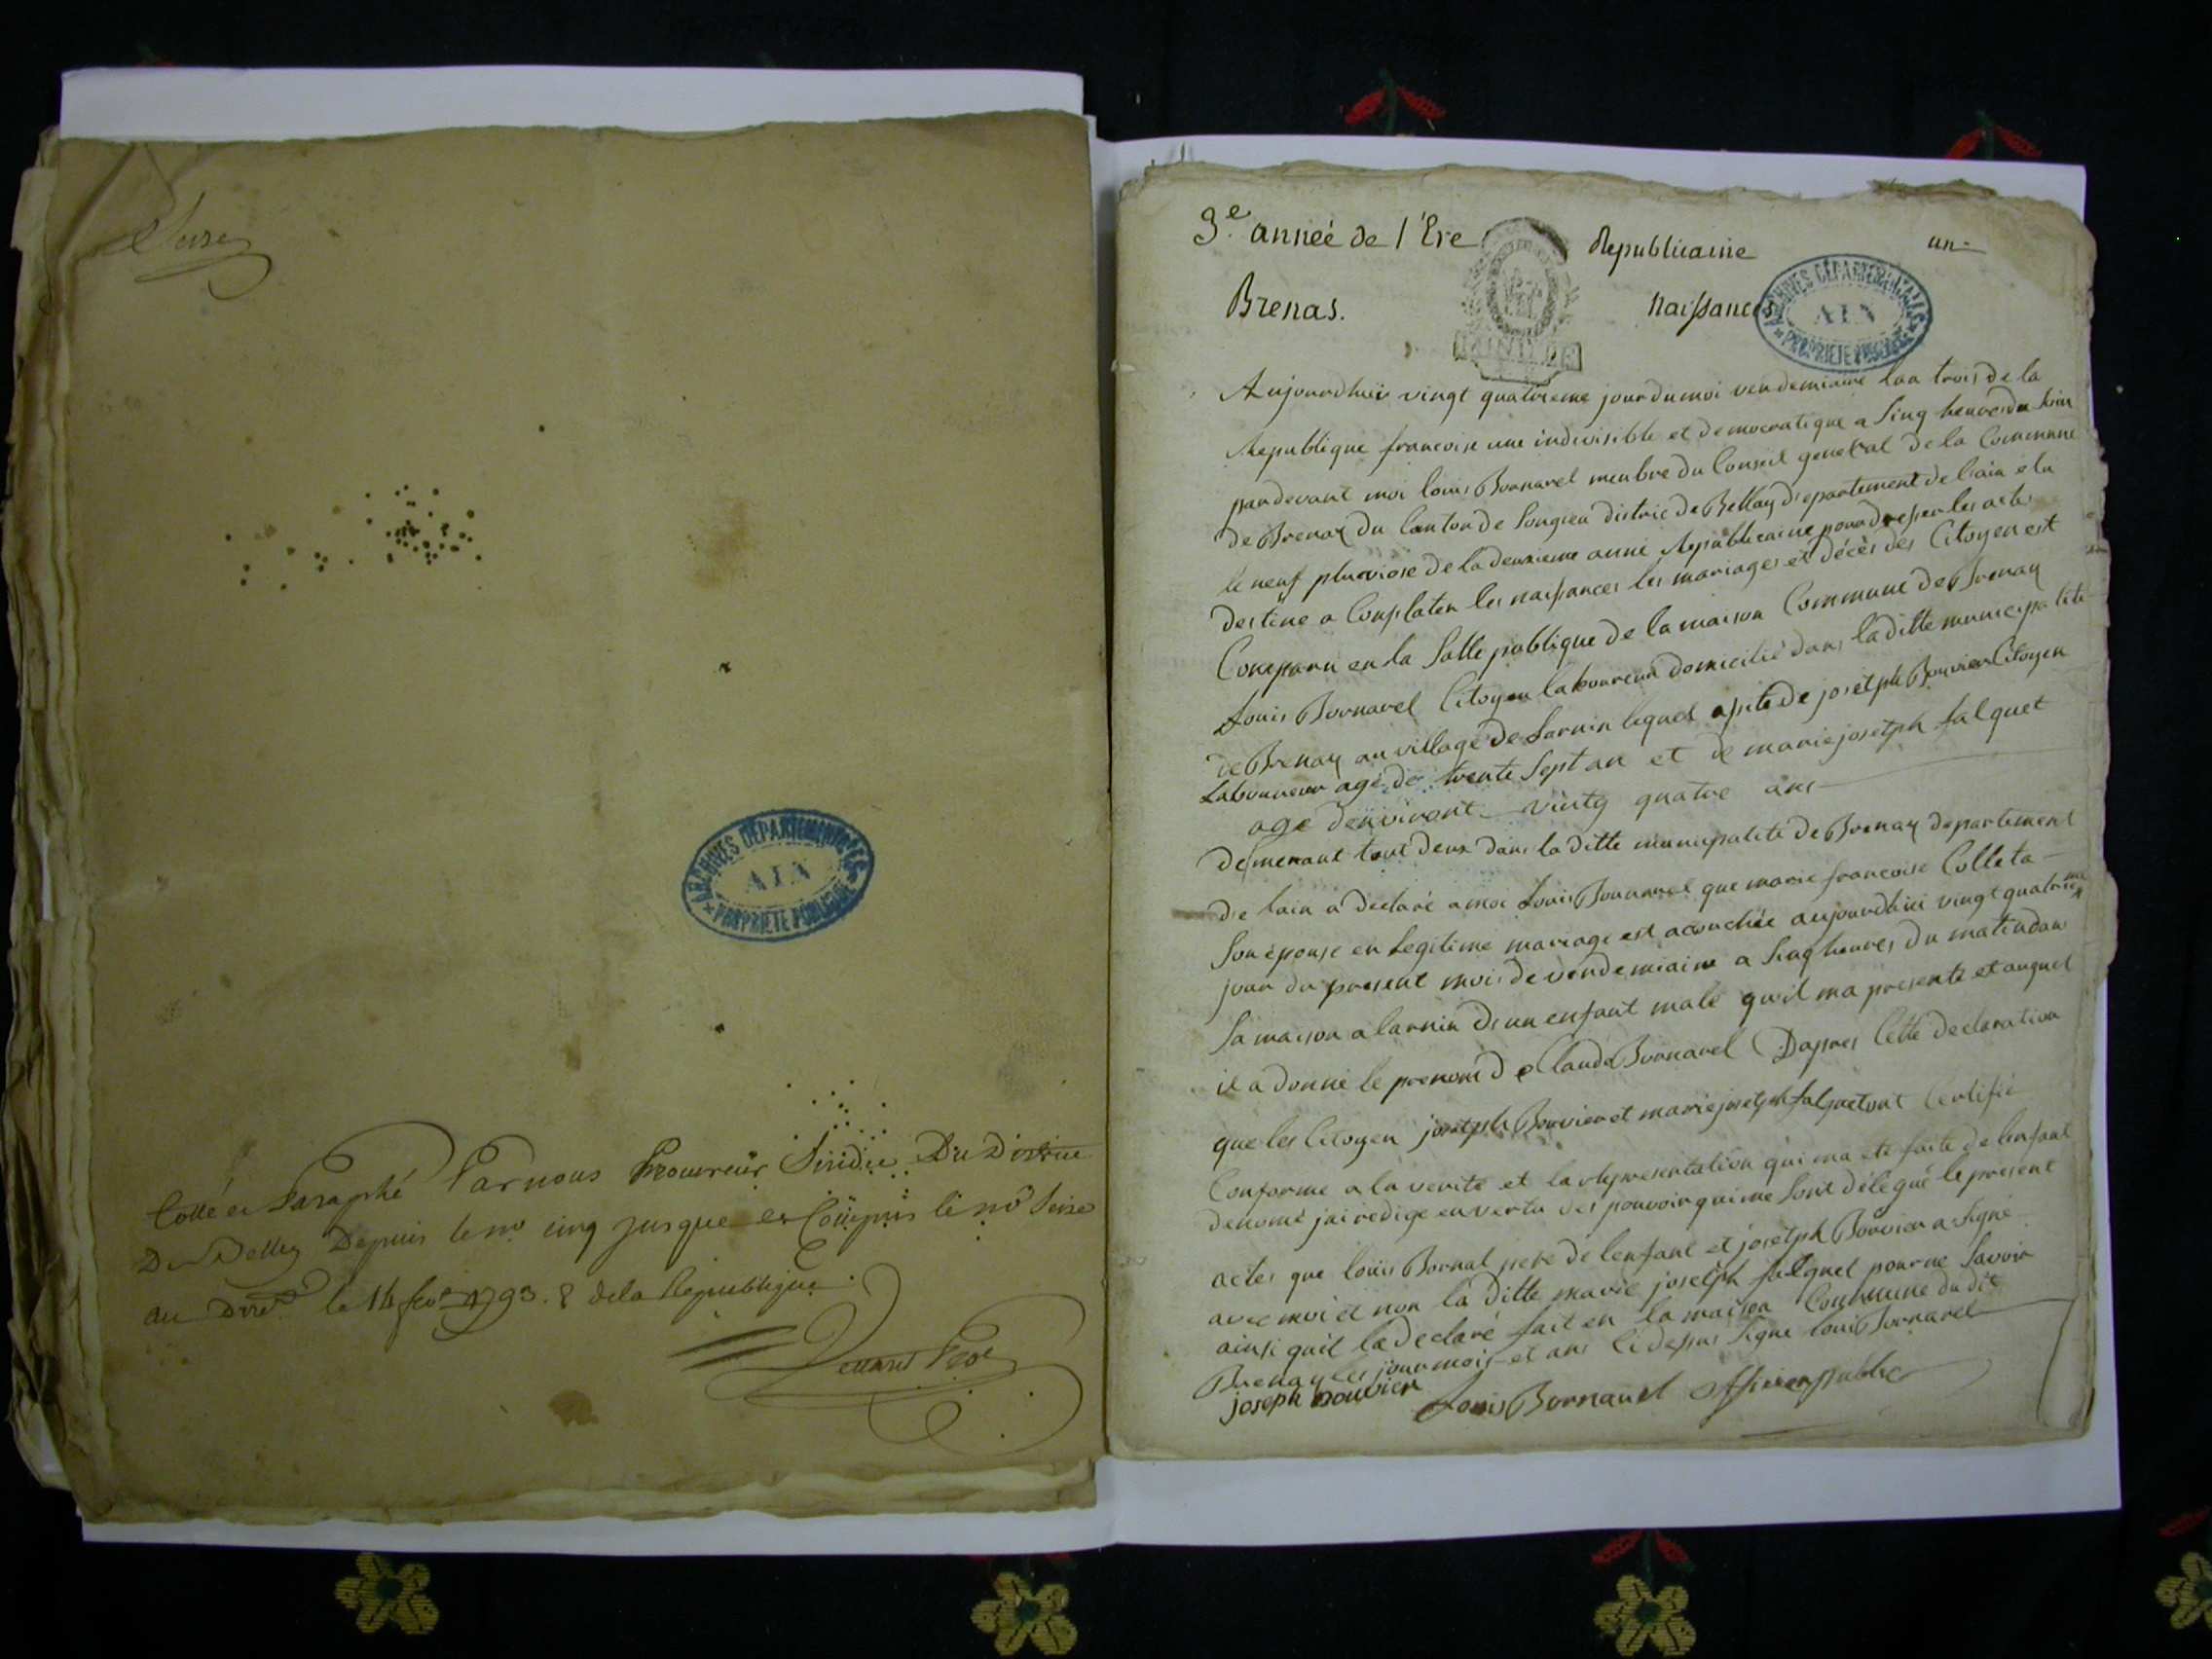 Seize
Cotté et Paraphé Par nous Procureur Sindic Du District
De Belley Depuis le no cinq jusque et Compris le no Seize
au Dire le 14 fevr 1793. 2 de la Republique.
ARCHIVES DEPARTEMENTALES
AIN
PROPRIETE PUBLIQUE
3e année de l'Ere Republicaine un
Brenas. Naissance
ARCHIVES DÉPARTEMENTALES
AIN
PROPRIETE PUBLIQUE
Aujourdhuis vingt quatrieme jour du moi vendemiaire lan trois de la
Republique francoise une indivisible et democratique a Sinq heures du Soir
pardevant moi louis Bornarel menbre du Conseil general de la Commune
de Brenax du Canton de Songieu distric de Bellay departement de lain elu
le neuf pluviose de la deuxieme anné Republicaine pour dresser les actes
destine a Conplater les naissances les mariages et décès des Citoyen est
Comparu en la Salle publique de la maison Commune de Brenax
Louis Bornarel Citoyen laboureur domicilié dans la ditte municipalité
de Brenax au village de Larnin lequel asisté de josetph Bouvier Citoyen
Laboureur agé de trente Sept an et de marie josetph falquet
age denviront vintg quatre ans
demenant tout deux dans la ditte municipalite de Brenax departement
de lain a declaré a moi Louis Bornarel que marie francoise Colleta
Son épouse en Legitime mariage est acouchée aujourdhui vingt quatrieme
jour du present mois de vendemiaire a Sinq heures du matin dans
Sa maison a larnin de un enfant male quil ma presenté et auquel
il a donné le prenom de Claude Bornarel Dapres Cette declaration
que les Citoyen josetph Bouvier et marie josetph falquet ont Certifié
Conforme a la verité et la Representation qui ma eté faite de lenfant
denomé jai redige en vertu des pouvoir qui me Sont délégué le present
actes que louis Bornal pere de lenfant et josetph Bouvier a Signé
avec moi et non la ditte marie josetph falquet pour ne Savoir
ainsi quil la declaré fait en la maison Commune du dit
Brenax les jour mois et ans Cidessus Signe louis Bornarel
joseph bouvier Louis Bornarel officier public